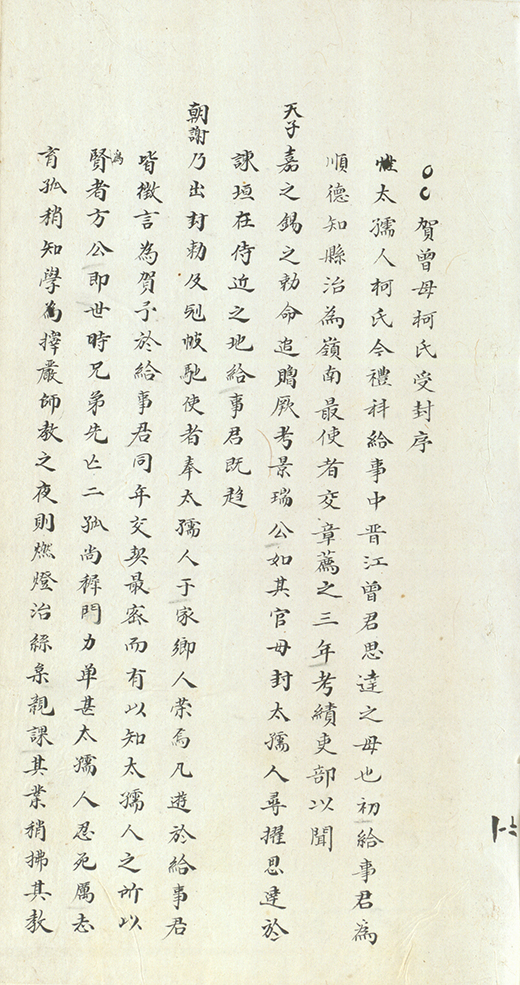 賀曾母柯氏受封序
惟太孺人柯氏今禮科給事中晋江曾君思達之母也初給事君為
順德知縣治為嶺南最使者交章薦之三年考績吏部以聞
天子嘉之錫之勅命追贈厥考景瑞公如其官母封太孺人尋擢思達於
諫垣在侍近之地給事君既趍
朝謝乃出封勅及冠帔馳使者奉太孺人于家鄉人榮焉凡遊於給事君
皆徵言為賀予於給事君同年交契最宻而有以知太孺人之所以
為賢者方公即世時兄弟先亡二孤尚穉門力单甚太孺人忍死厲志
育孤稍知學為擇嚴師教之夜則燃燈治絲枲親課其業稍拂其教